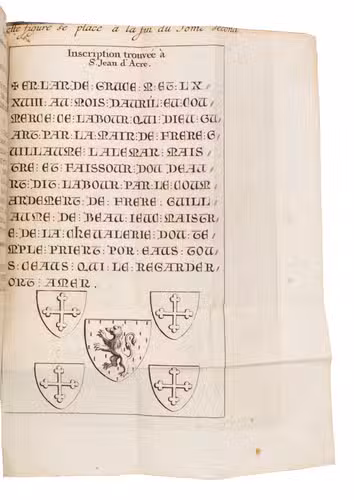 Cette figure se place a la fin du Tome second
Inscription trouvée à
S.t Jean d'Acre.
✠ EN : LAN : DE : GRACE : M : ET : LX /
XVIII : AU : MOIS : DAURIL : EU : COU /
MERCE : CE : LABOUR : QUI : DIEU : GU /
ART : PAR : LA : MAIR : DE : FRERE : G /
UILLAUME : LALEMAR : MAIS /
TRE : ET : FAISSOUR : DOU : DEAU /
RT : DIT : LABOUR : PAR : LE : COUM /
ARDEMENT : DE : FRERE : GUILL /
AUME : DE : BEAU : IEUC : MAISTR /
E : DE : LA : CHEUALERIE : DOU : TE /
MPLE : PRIERT : POR : EAUS : TOU /
S : CEAUS : QUI : LE : REGARDER /
ORT : AMER .